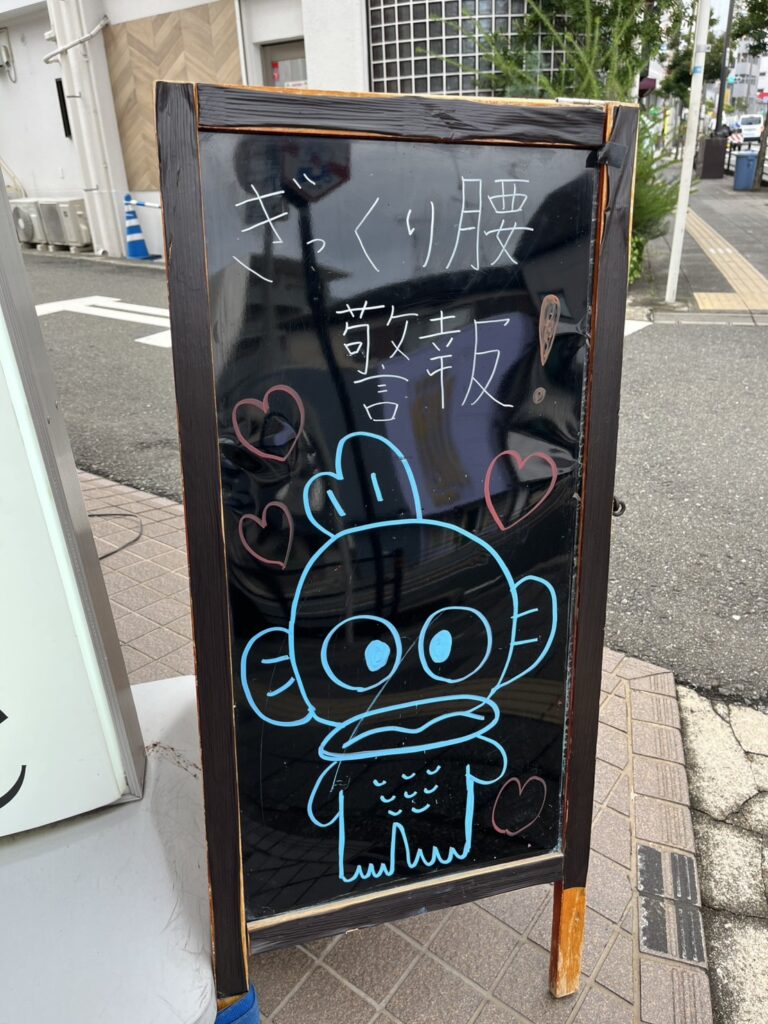 ぎっくり腰
警報!